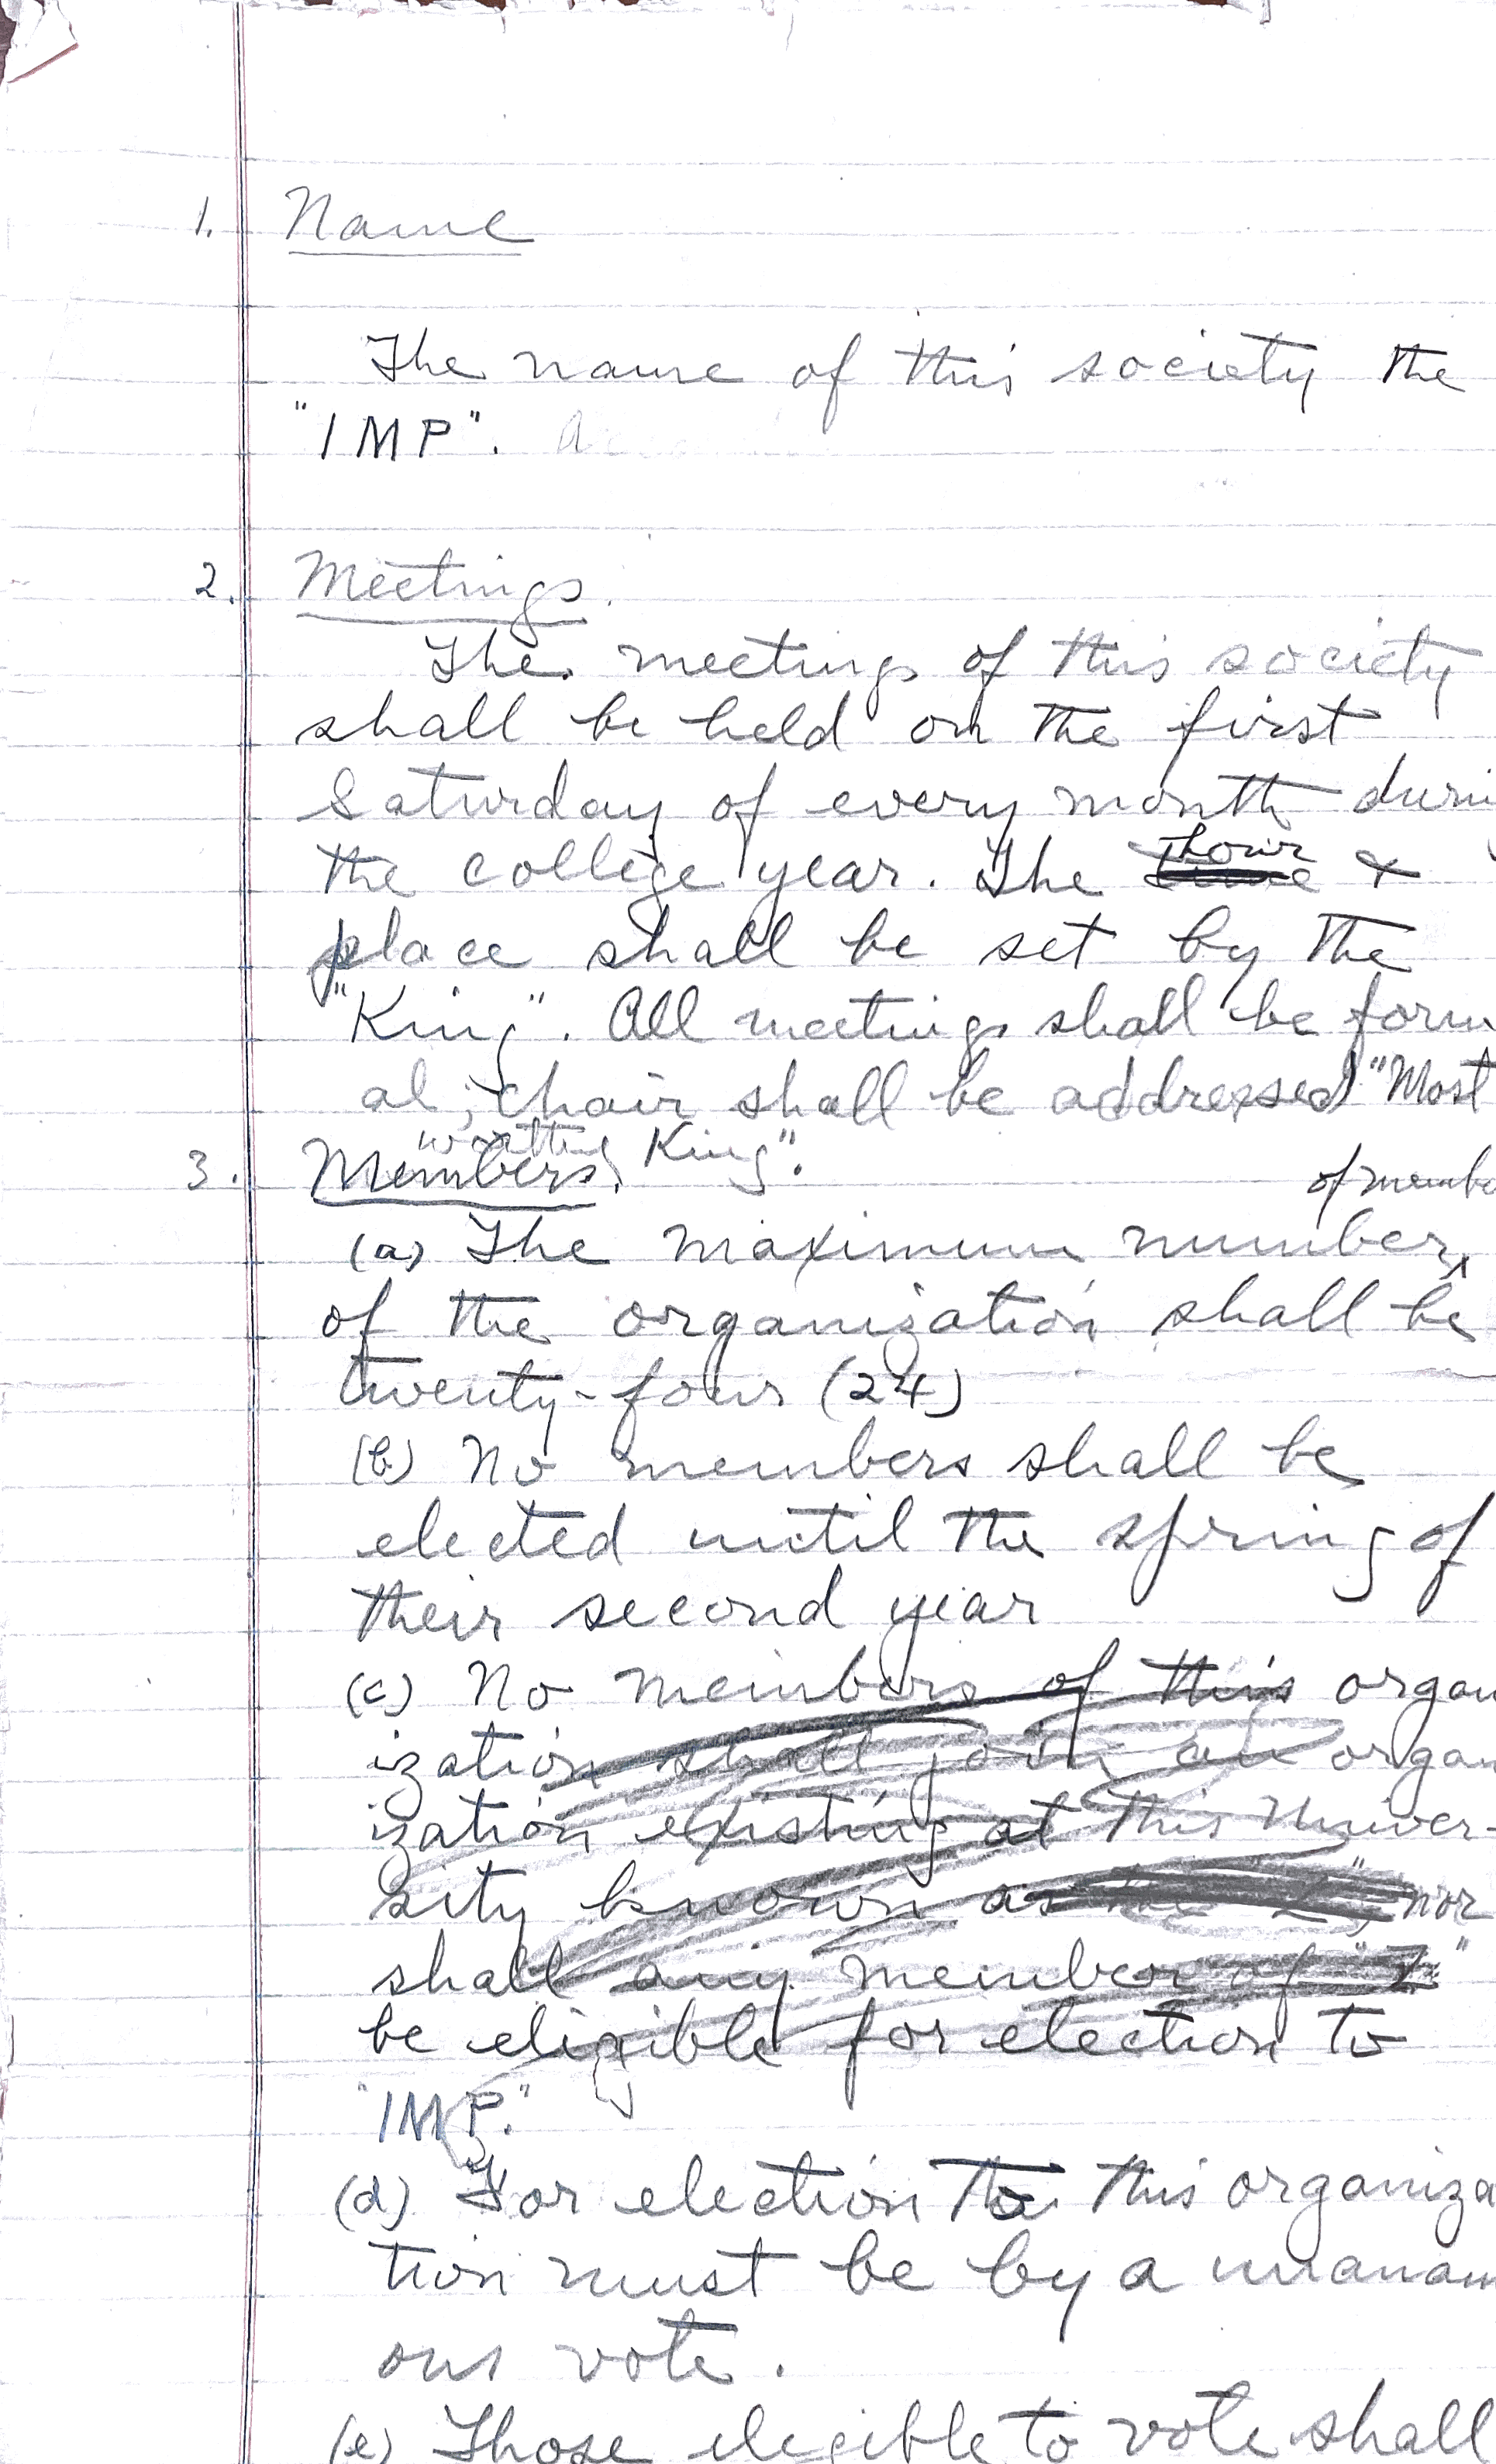 1. Name
The name of this society the
"IMP".
2. Meetings.
The meetings of this society
shall be held on the first
Saturday of every month duri
the college year. The hour &
place shall be set by the
"King". All meetings shall be form
al; chair shall be addressed "Most
King".
3. Members.
of membe
(a) The maximum number
of the organization shall be
twenty-four (24)
(b) No members shall be
elected until the spring of
their second year
(c) No members of this organ
ization shall join an organ
ization existing at this Univer-
sity known as the "Z", nor
shall any member of "Z"
be eligible for election to
"IMP."
(d) For election to this organiza
tion must be by a unanam
ous vote.
(e) Those elegible to vote shall